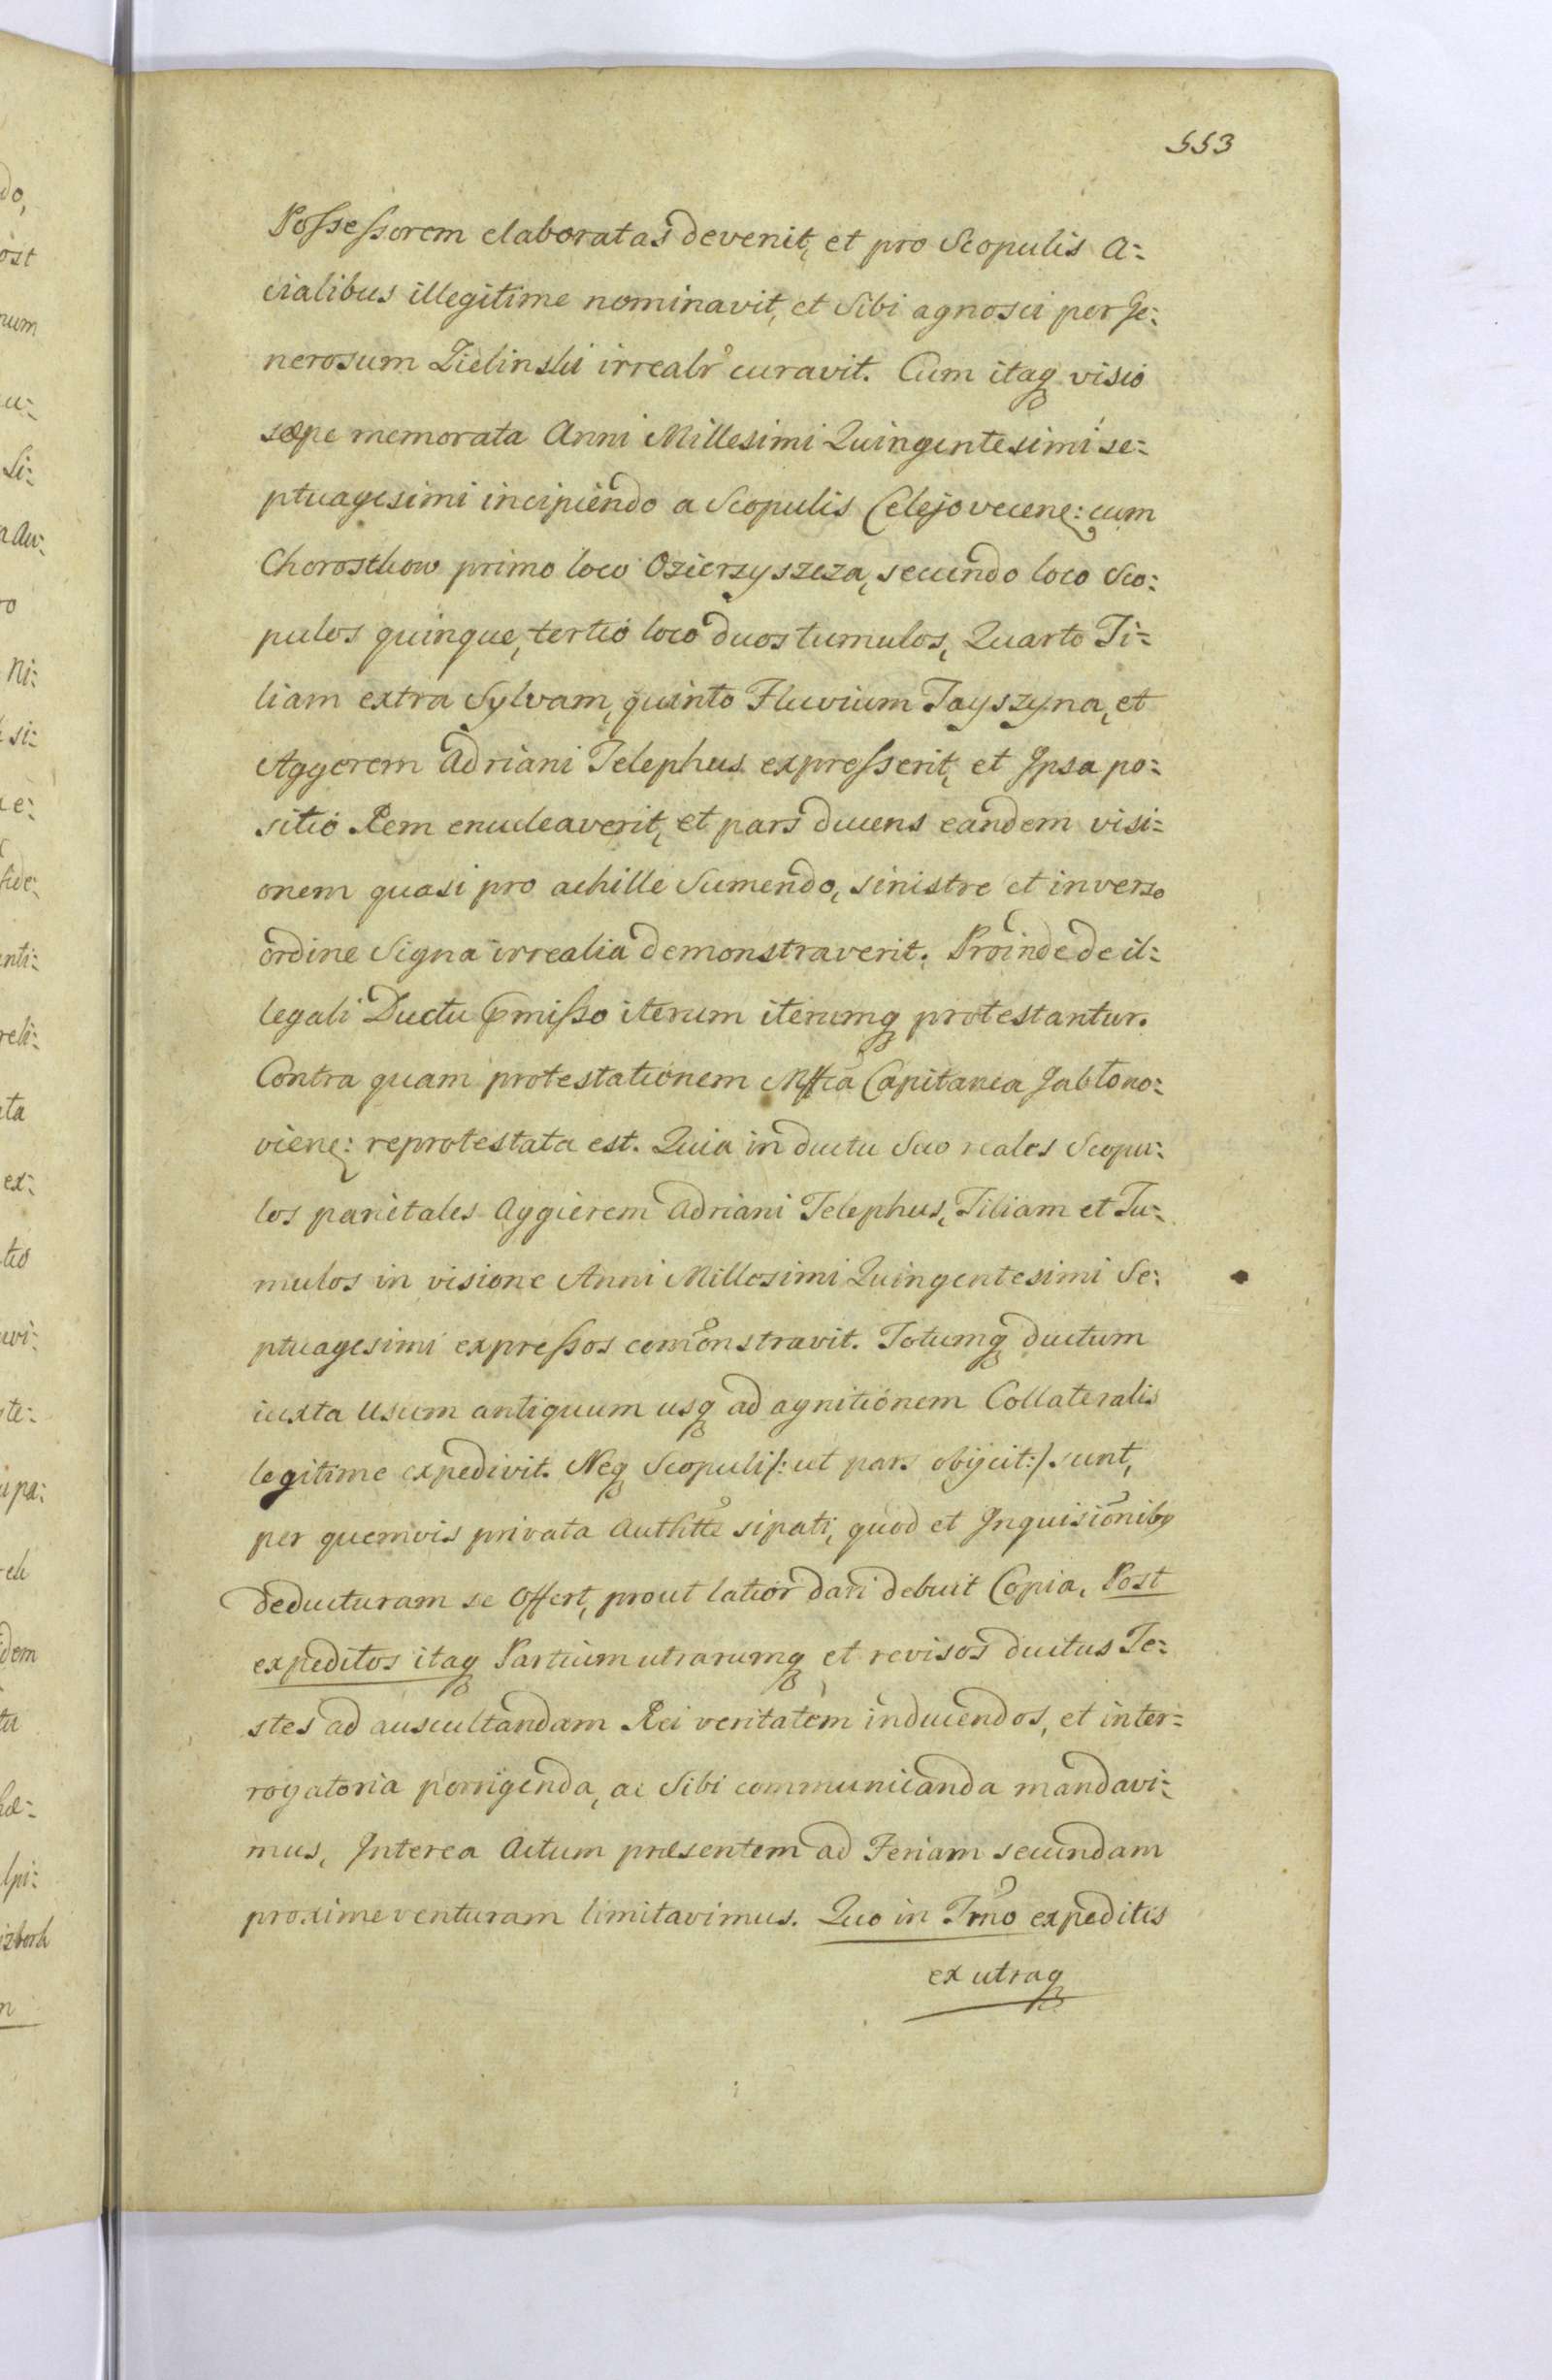 553
Possessorem elaboratas devenit, et pro Scopulis a:
cialibus illegitime nominavit, et Sibi agnosci per Ge:
nerosum Zielinski irrealr curavit. Cum itaq visio
sæpe memorata Anni Millesimi Quingentesimi se:
ptuagesimi incipiendo a Scopulis Celejovecene: cum
Chorostkow primo loco Ozierzyszcza, secundo loco Sco:
pulos quinque, tertio loco duos tumulos, Quarto Ti:
liam extra Sylvam, quinto Fluvium Tayszyna, et
Aggerem Adriani Telephus expresserit, et Ipsa po:
sitio Rem enucleaverit, et pars ducens eandem visi:
onem quasi pro achille Sumendo, sinistre et inverso
ordine Signa irrealia demonstraverit. Proinde de il:
legali Ductu pmisso iterum iterumq protestantur.
Contra quam protestationem Mfica Capitanea Jabłono:
viene: reprotestata est. Quia in ductu Suo reales Scopu:
los parietales Aggierem Adriani Telephus, Tiliam et Tu:
mulos in visione Anni Millesimi Quingentesimi Se:
ptuagesimi expressos comonstravit. Totumq ductum
iuxta Usum antiquum usq ad agnitionem Collateralis
legitime expedivit. Neq Scopuli /: ut pars obijcit :/ sunt,
per quemvis privata Authtte sipati, quod et Inquisionibg
deducturam se Offert, prout latior dari debuit Copia. Post
expeditos itaq Partium utrarumq et revisos ductus Te:
stes ad auscultandam Rei veritatem inducendos, et inter:
rogatoria porrigenda, ac Sibi communicanda mandavi:
mus, Interea Actum præsentem ad Feriam secundam
proxime venturam limitavimus. Quo in Trno expeditis
ex utraq